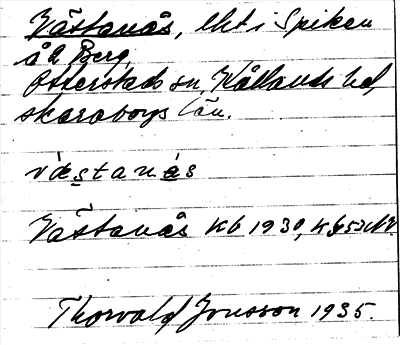 Västanås, lht i Spiken
å 2 Berg,
Otterstads sn, Kållands hd,
skaraborgs län.
västanås
Västanås Kb 1930,
Thorvald Jonsson 1935.